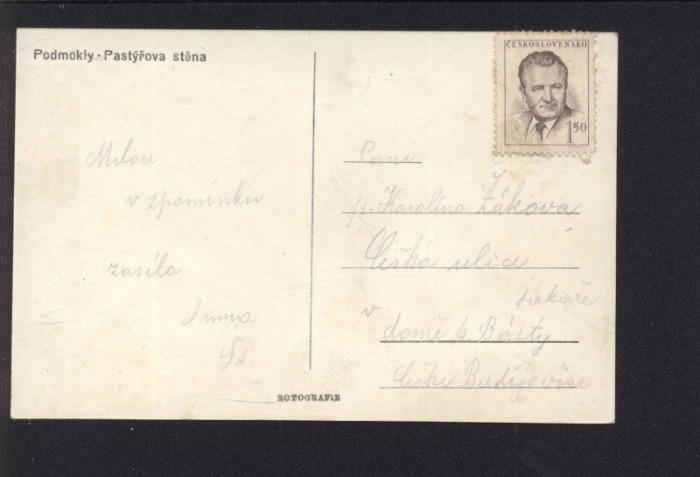 Podmokly - Pastýřova stěna
ČESKOSLOVENSKO
1 50
Milou
vzpomínku
zasílá
Anna
Paní
p. Karolína Žáková
Česká ulice
pekaře
v domě p. Bárty
České Budějovice
ROTOGRAFIE